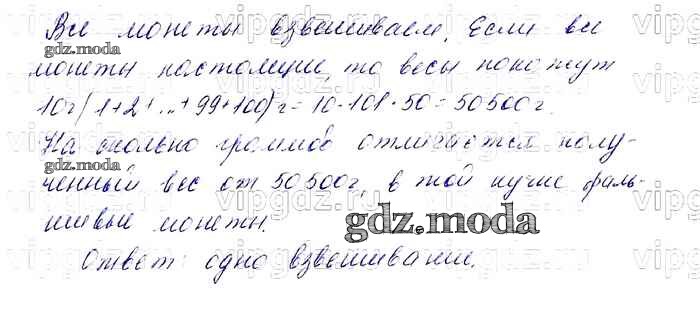 Все монеты взвешиваем. Если все
монеты настоящие, то весы покажут
10г(1+2+...+99+100)г = 10·101·50 = 50500г.
На сколько граммов отличается полу-
ченный вес от 50500г, в той кучке фаль-
шивые монеты.
Ответ: одно взвешивание.
gdz.moda
gdz.moda
gdz.moda
gdz.moda
vipgdz.ru